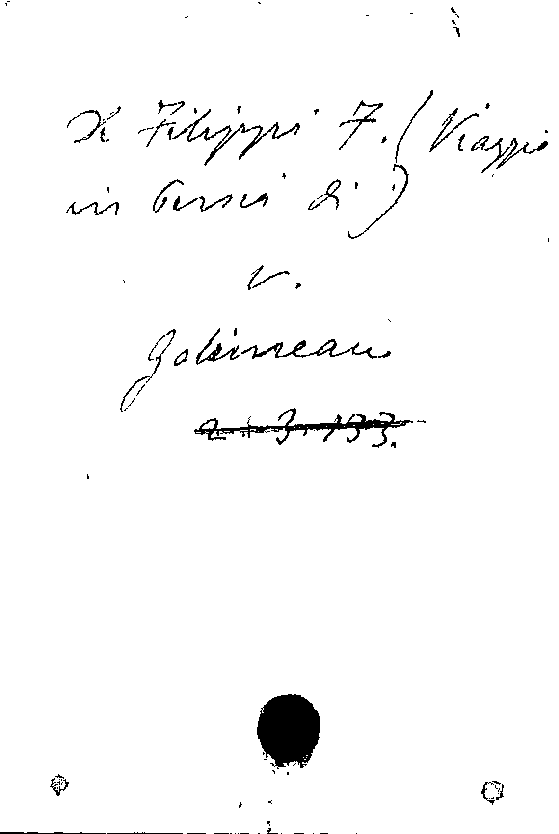 De Filippi F. (Viaggio
in Persia di)
v.
Gobineau
2 : 3. 133.